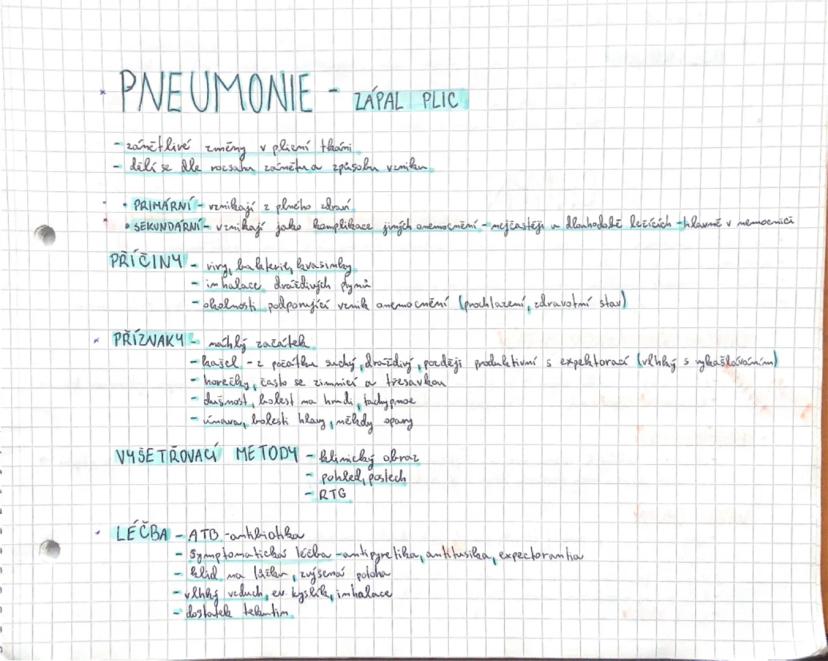 PNEUMONIE - ZÁPAL PLIC
- zánětlivé změny v plicní tkáni
- dělí se dle rozsahu zánětu a způsobu vzniku
• PRIMÁRNÍ - vznikají z plného zdraví
• SEKUNDÁRNÍ - vznikají jako komplikace jiných onemocnění - nejčastěji u dlouhodobě ležících - hlavně v nemocnici
PŘÍČINY - viry, bakterie, kvasinky
- inhalace dráždivých plynů
- okolnosti podporující vznik onemocnění (prochlazení, zdravotní stav)
PŘÍZNAKY - náhlý začátek
- kašel - z počátku suchý, dráždivý, později produktivní s expektorací (vlhký s vykašláváním)
- horečky, často se zimnicí a třesavkou
- dušnost, bolest na hrudi, tachypnoe
- únava, bolesti hlavy, někdy opary
VYŠETŘOVACÍ METODY - klinický obraz
- pohled, poslech
- RTG
LÉČBA - ATB - antibiotika
- symptomatická léčba - antipyretika, antitusika, expectorantia
- klid na lůžku, zvýšená poloha
- vlhký vzduch, ev. kyslík, inhalace
- dostatek tekutin